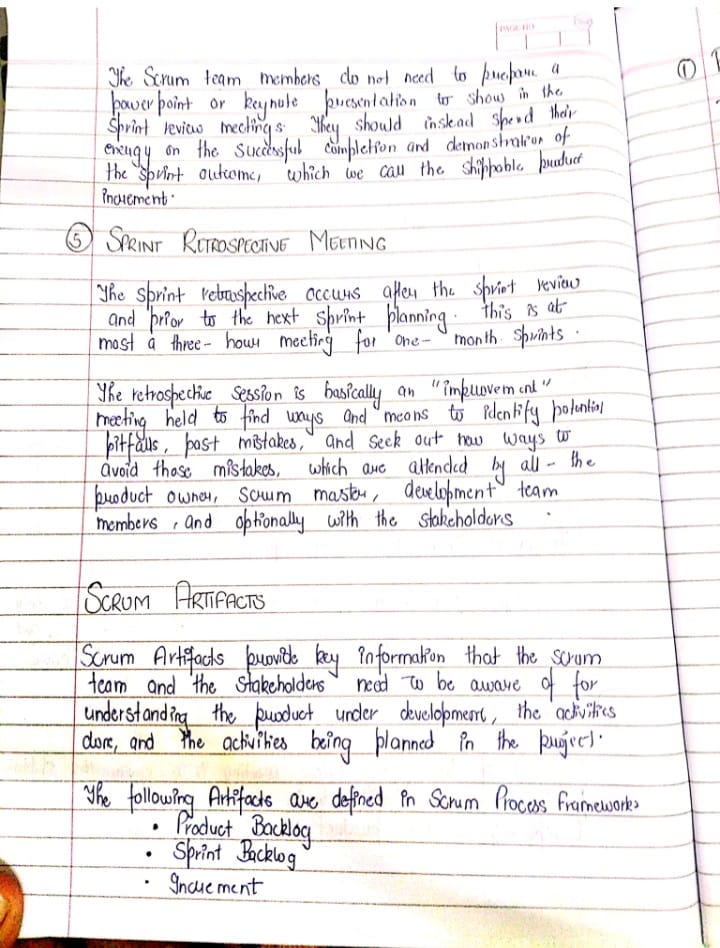 PAGE NO.
The Scrum team members do not need to prepare a
power point or keynote presentation to show in the
Sprint review meetings. They should instead spend their
energy on the successful completion and demonstration of
the sprint outcome, which we call the shippable product
increment.
⑤ SPRINT RETROSPECTIVE MEETING
The sprint retrospective occurs after the sprint review
and prior to the next sprint planning. This is at
most a three-hour meeting for one-month sprints.
The retrospective session is basically an "improvement"
meeting held to find ways and means to identify potential
pitfalls, past mistakes, and seek out new ways to
avoid those mistakes, which are attended by all - the
product owner, scrum master, development team
members, and optionally with the stakeholders.
SCRUM ARTIFACTS
Scrum Artifacts provide key information that the scrum
team and the stakeholders need to be aware of for
understanding the product under development, the activities
done, and the activities being planned in the project.
The following Artifacts are defined in Scrum Process Framework>
• Product Backlog
• Sprint Backlog
• Increment
①